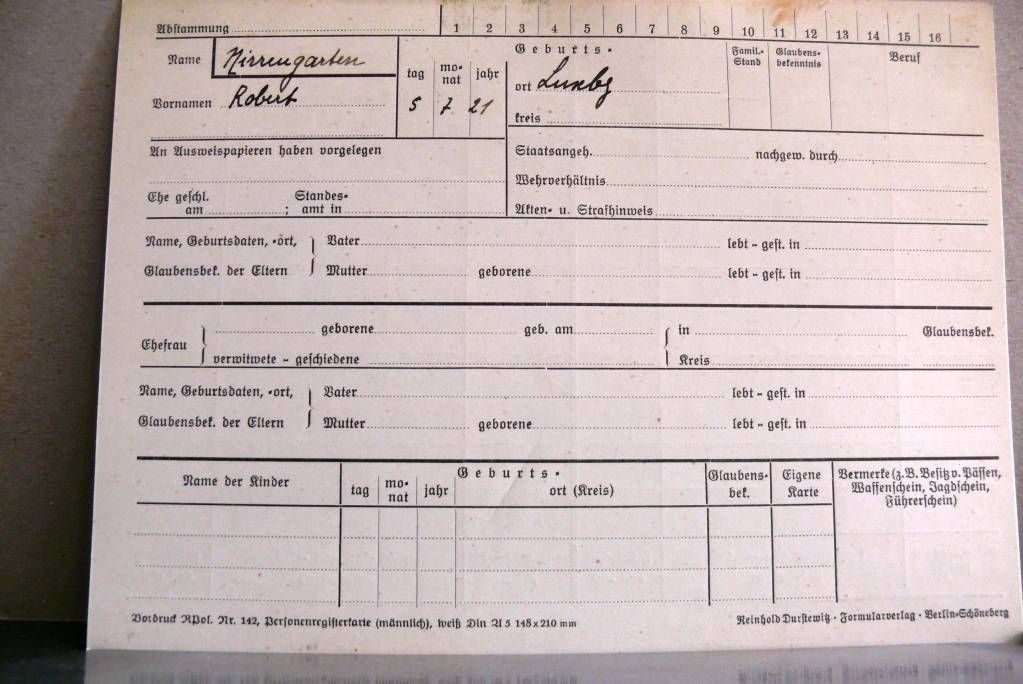 Abstammung 1 2 3 4 5 6 7 8 9 10 11 12 13 14 15 16
Name Nirrengarten
Vornamen Robert
tag monat jahr
5 7 21
Geburts-
ort Luxbg
kreis
Famil.-Stand
Glaubens-bekenntnis
Beruf
An Ausweispapieren haben vorgelegen
Ehe geschl. Standes-
am ; amt in
Staatsangeh. nachgew. durch
Wehrverhältnis
Akten- u. Strafhinweis
Name, Geburtsdaten, -ort, Vater lebt - gest. in
Glaubensbek. der Eltern Mutter geborene lebt - gest. in
Ehefrau
geborene geb. am in Glaubensbek.
verwitwete - geschiedene Kreis
Name, Geburtsdaten, -ort, Vater lebt - gest. in
Glaubensbek. der Eltern Mutter geborene lebt - gest. in
Name der Kinder
Geburts-
tag mo-nat jahr ort (Kreis)
Glaubens-bek.
Eigene Karte
Vermerke (z.B. Besitz v. Pässen,
Waffenschein, Jagdschein,
Führerschein)
Vordruck RPol. Nr. 142, Personenregisterkarte (männlich), weiß Din A 5 148x210 mm
Reinhold Durstewitz · Formularverlag · Berlin-Schöneberg